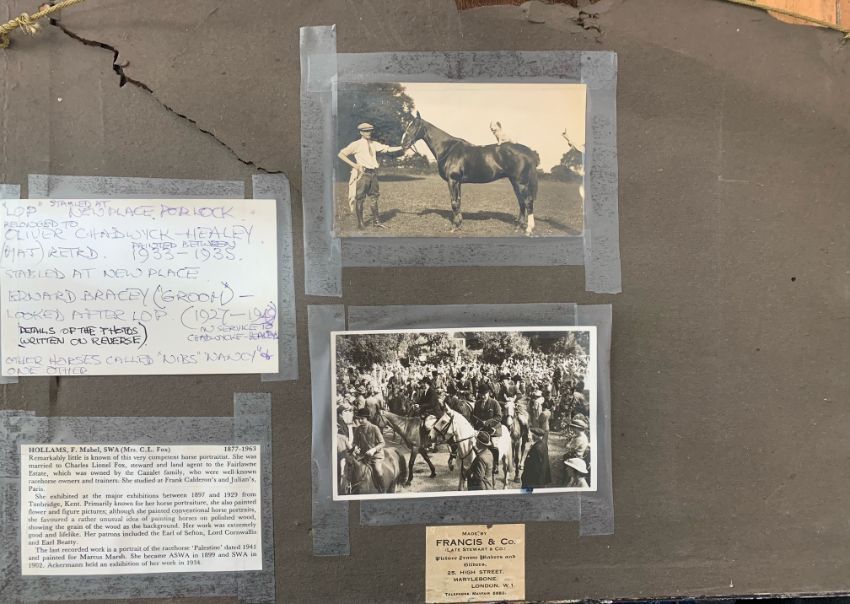 "LOP" STABLED AT NEW PLACE, PORLOCK
BELONGED TO
OLIVER CHADWYCK-HEALEY
(MAJ) RETRD. PAINTED BETWEEN
1933-1935.
STABLED AT NEW PLACE
BERNARD BRACEY (GROOM) -
LOOKED AFTER LOP. (1927-
IN SERVICE TO
CHADWYCKE-HEALEY
DETAILS OF THE PHOTOS
WRITTEN ON REVERSE)
OTHER HORSES CALLED "NIBS" "NANCY" &
ONE OTHER
HOLLAMS, F. Mabel, SWA (Mrs. C.L. Fox) 1877-1963
Remarkably little is known of this very competent horse portraitist. She was
married to Charles Lionel Fox, steward and land agent to the Fairlawne
Estate, which was owned by the Cazalet family, who were well-known
racehorse owners and trainers. She studied at Frank Calderon's and Julian's,
Paris.
She exhibited at the major exhibitions between 1897 and 1929 from
Tonbridge, Kent. Primarily known for her horse portraiture, she also painted
flower and figure pictures; although she painted conventional horse portraits,
she favoured a rather unusual idea of painting horses on polished wood,
showing the grain of the wood as the background. Her work was extremely
good and lifelike. Her patrons included the Earl of Sefton, Lord Cornwallis
and Earl Beatty.
The last recorded work is a portrait of the racehorse 'Palestine' dated 1941
and painted for Marcus Marsh. She became ASWA in 1899 and SWA in
1902. Ackermann held an exhibition of her work in 1934.
MADE BY
FRANCIS & Co.
(LATE STEWART & CO.)
Picture Frame Makers and
Gilders,
25, HIGH STREET,
MARYLEBONE,
LONDON, W.1.
TELEPHONE MAYFAIR